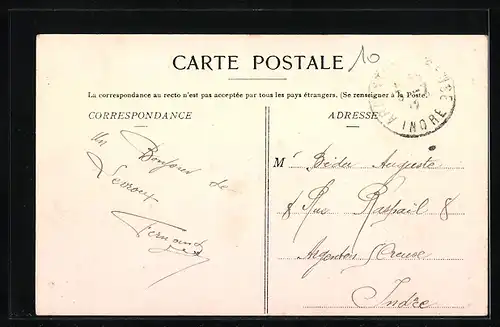 10
CARTE POSTALE
La correspondance au recto n'est pas acceptée par tous les pays étrangers. (Se renseigner à la Poste)
CORRESPONDANCE
Un Bonjour de
Levroux
Fernand
ADRESSE
INDRE
Mr Bédu Auguste
8 Rue Raspail 8
Argenton s/Creuse
Indre